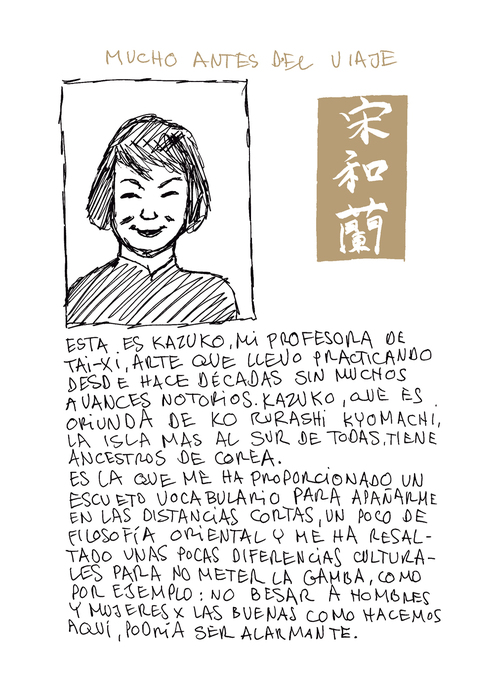 MUCHO ANTES DEL VIAJE
宋和蘭
ESTA ES KAZUKO, MI PROFESORA DE
TAI-XI, ARTE QUE LLEVO PRACTICANDO
DESDE HACE DÉCADAS SIN MUCHOS
AVANCES NOTORIOS. KAZUKO, QUE ES
ORIUNDA DE KO KURASHI KYOMACHI,
LA ISLA MAS AL SUR DE TODAS, TIENE
ANCESTROS DE COREA.
ES LA QUE ME HA PROPORCIONADO UN
ESCUETO VOCABULARIO PARA APAÑARME
EN LAS DISTANCIAS CORTAS, UN POCO DE
FILOSOFÍA ORIENTAL Y ME HA RESAL-
TADO UNAS POCAS DIFERENCIAS CULTURA-
LES PARA NO METER LA GAMBA, COMO
POR EJEMPLO: NO BESAR A HOMBRES
Y MUJERES X LAS BUENAS COMO HACEMOS
AQUÍ, PODRÍA SER ALARMANTE.